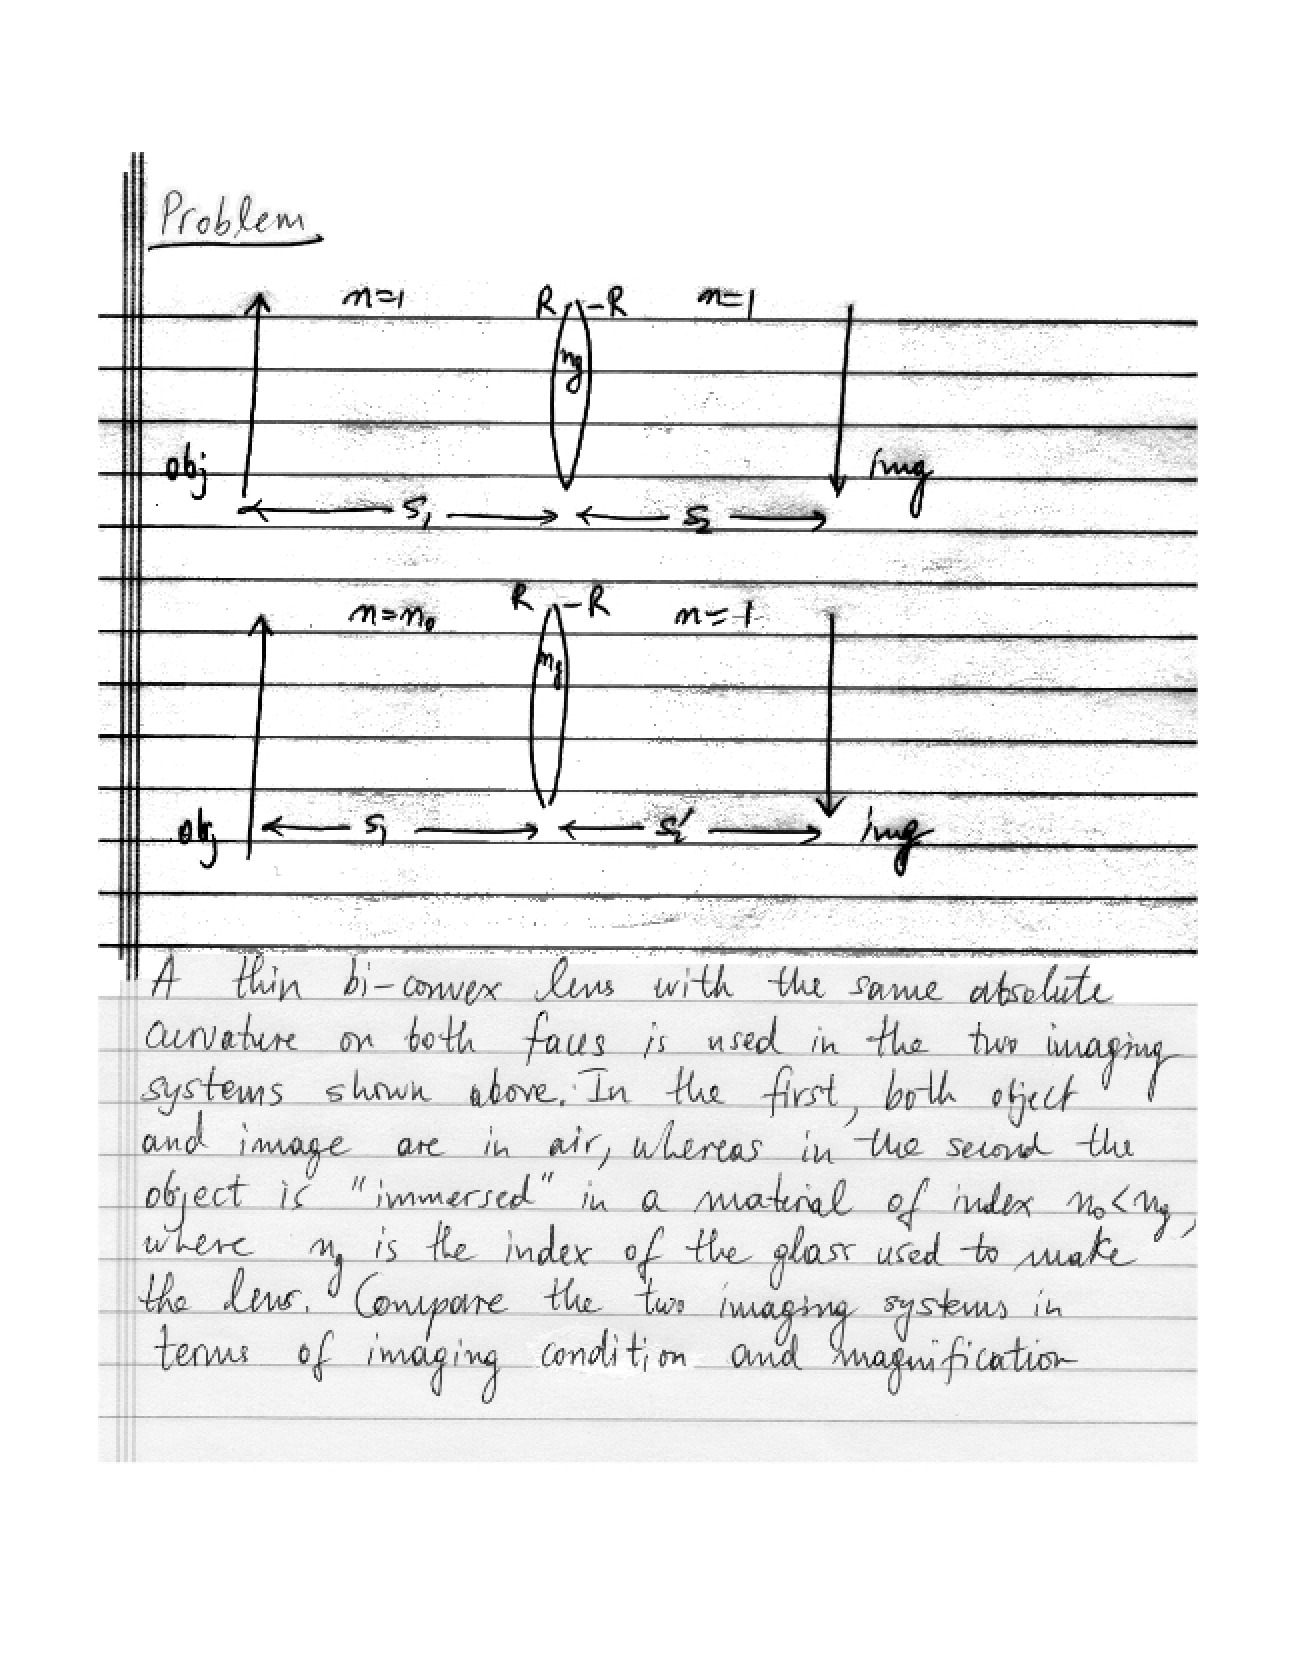 Problem
n=1 R -R n=1
ng
obj img
s₁ s₂
n=n₀ R -R n=1
ng
obj s₁ s₂' img
A thin bi-convex lens with the same absolute
curvature on both faces is used in the two imaging
systems shown above. In the first, both object
and image are in air, whereas in the second the
object is "immersed" in a material of index n₀<ng,
where ng is the index of the glass used to make
the lens. Compare the two imaging systems in
terms of imaging condition and magnification